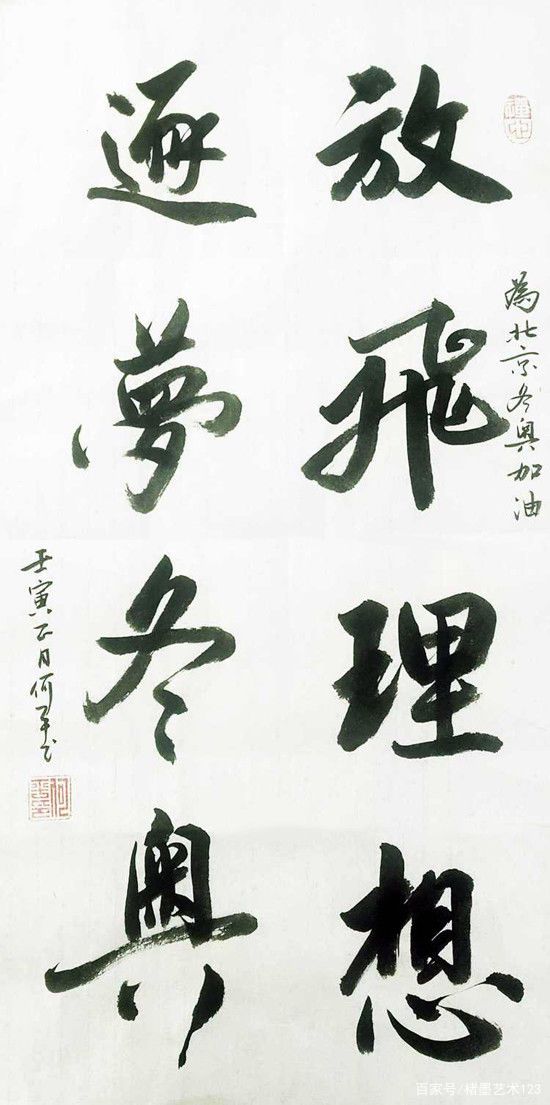 為北京冬奧加油
放飛理想
逐夢冬奧
壬寅正月何平书
百家号/楮墨艺术123